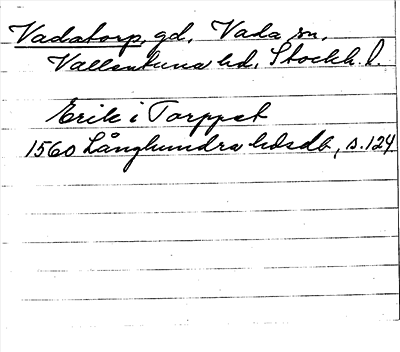 Vadatorp, gd, Vada sn,
Vallentuna hd, Stockh. l.
Erik i Torppet
1560 Långhundra hdsdb, s. 124